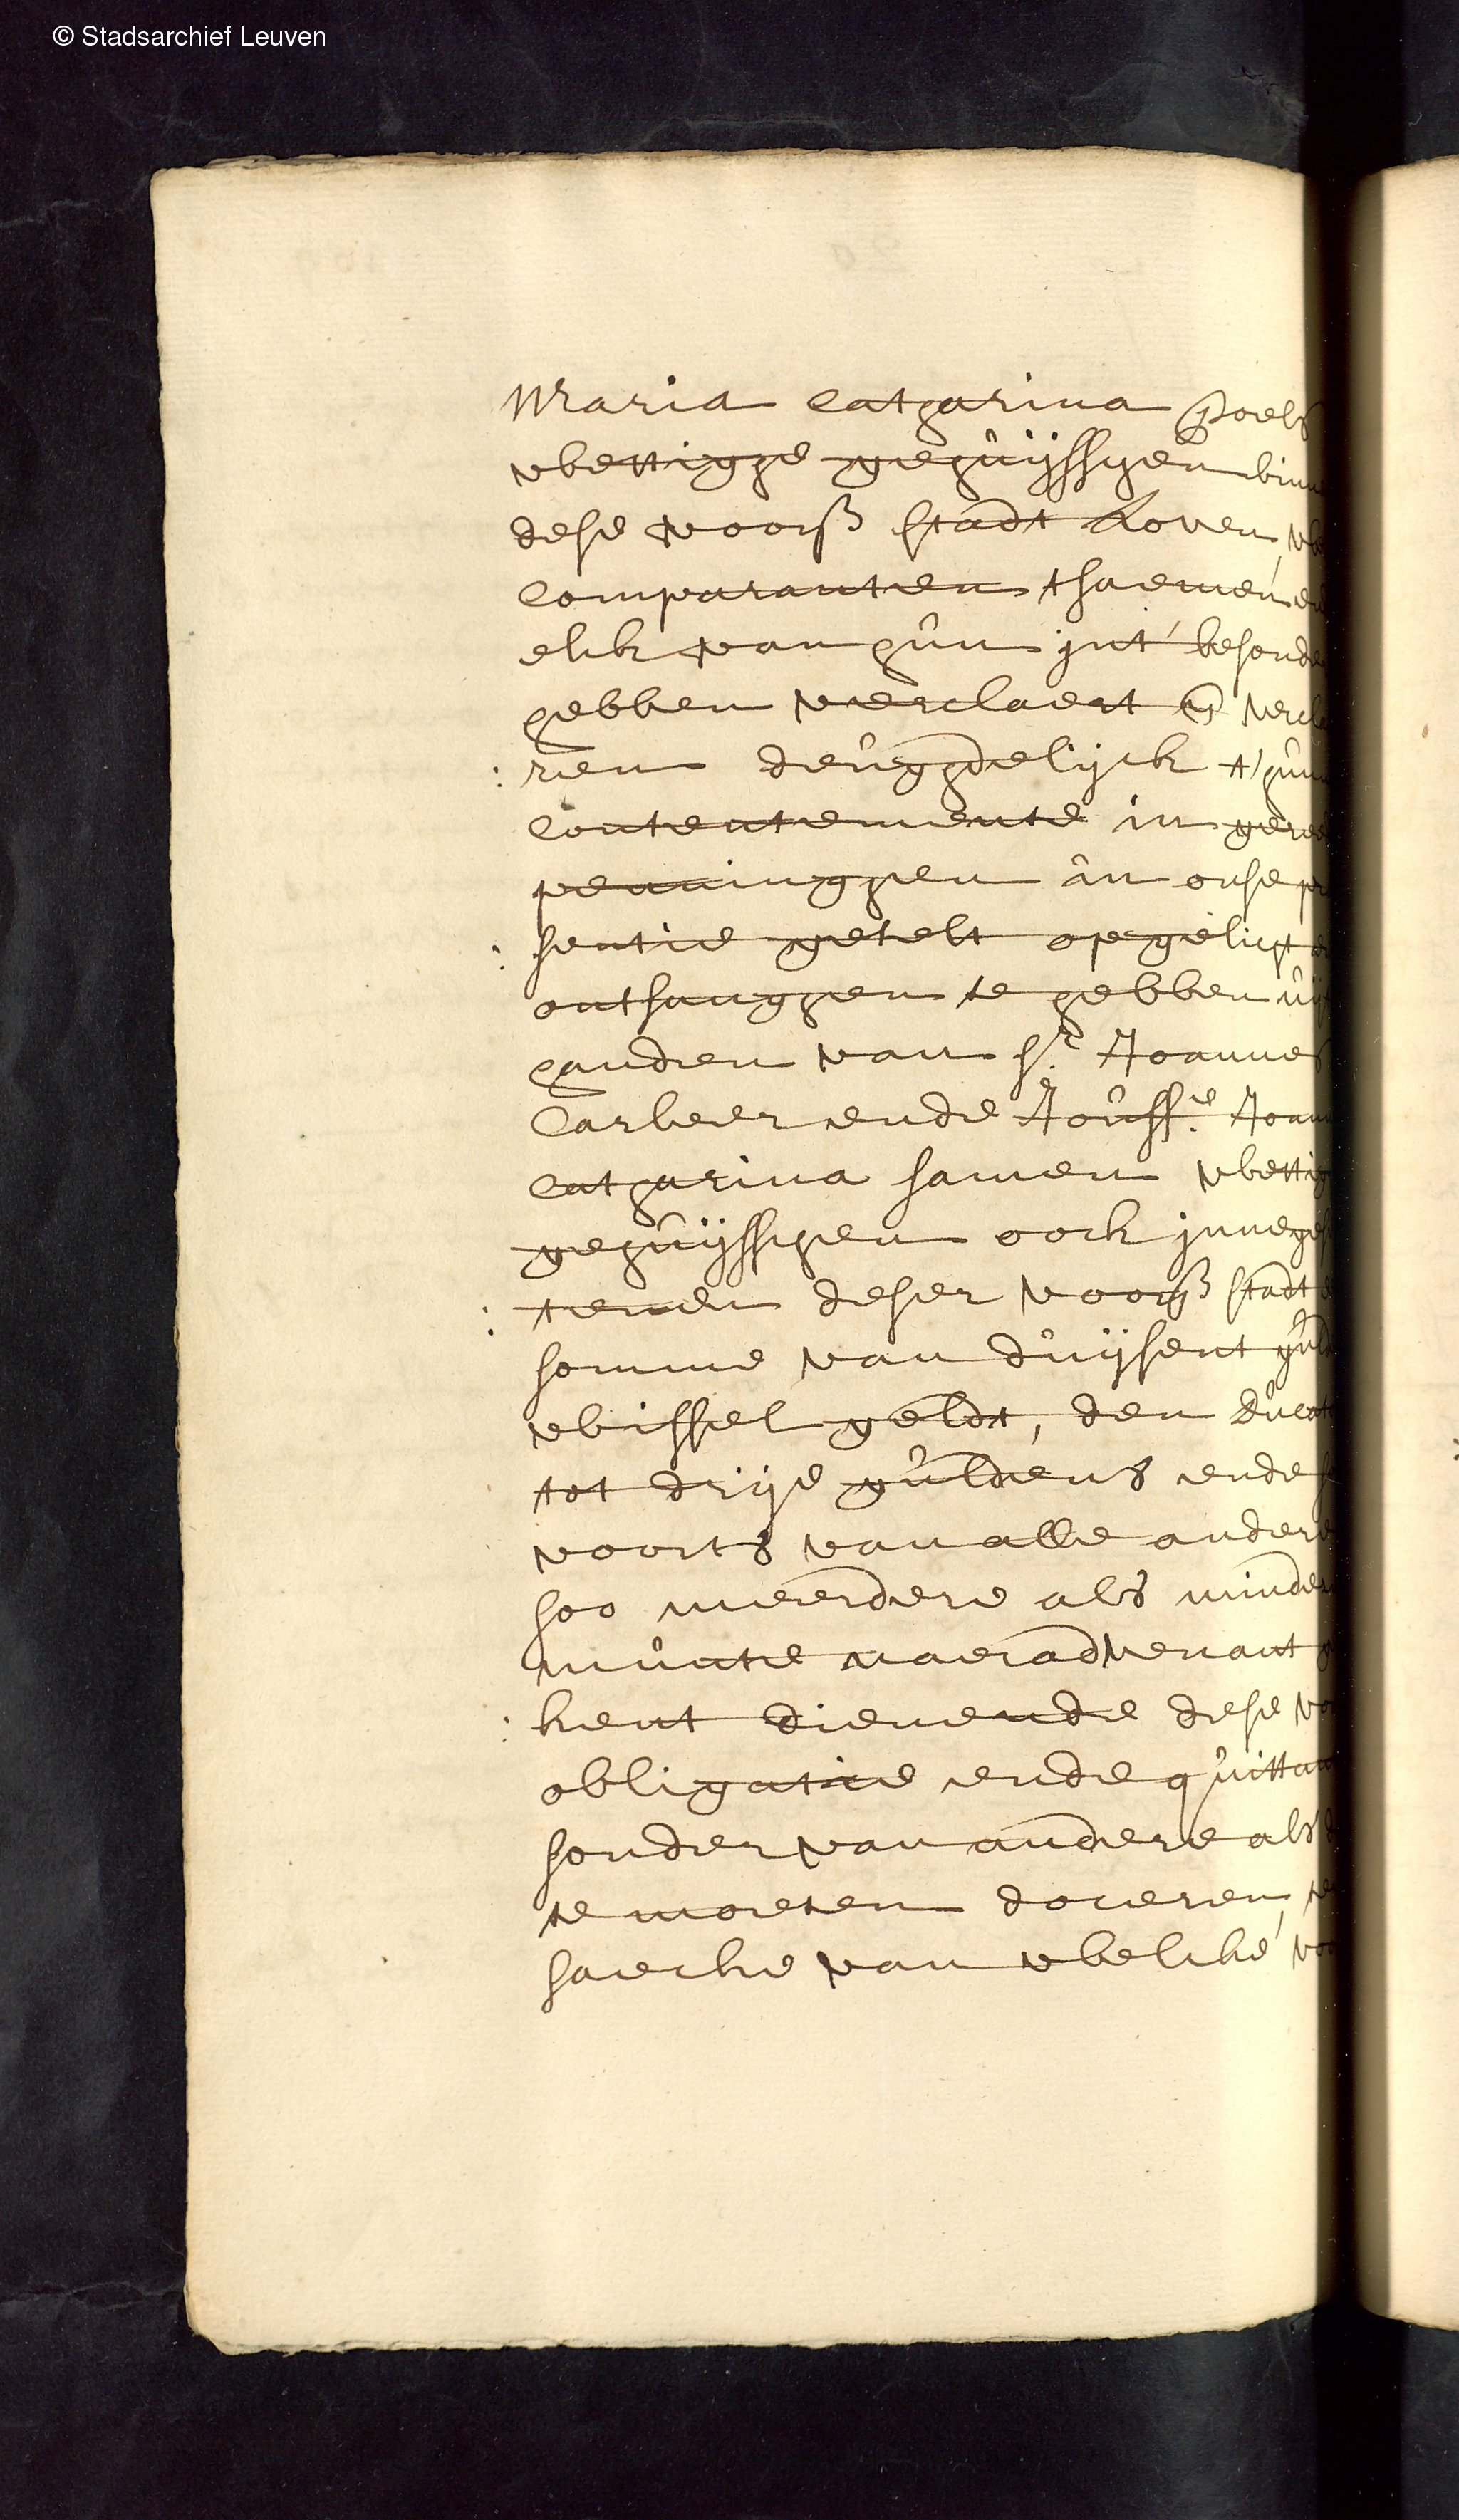 © Stadsarchief Leuven
Maria Catharina Poels
wettighe gehuijsschen bin
dese voors stadt Loven,
Comparanten tsaemen en
elck van hun int besonde
hebben verclaert en vercle
: ren deughdelijck t'hun
Contentemente in geree
penninghen in onse pre
: sentie getelt opgelicht
ontfanghen te hebben uijt
handen van Sr. Joannes
Carleer ende Jouffe. Joan
Catharina samen wettig
gehuijsschen oock innegese
: tenen deser voors stadt
somme van duijsent guld
wissel geldt, den Ducat
tot drije guldens ende
voorts van alle andere
soo meerdere als minder
munte naer advenant
: kent dienende dese
obligatie ende quittan
sonder van andere als
te moeten doceren,
saecke van welcke